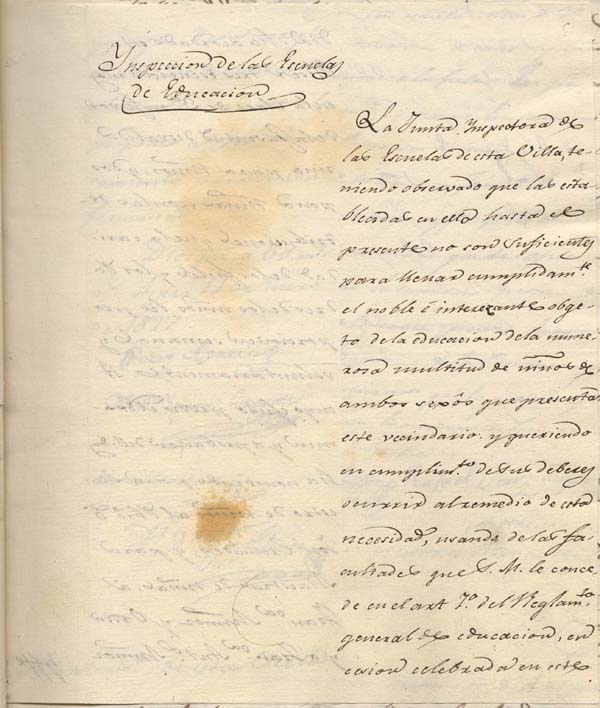 Ynspeccion de las Escuelas
de Educacion
La Junta Ynspectora de
las Escuelas de esta Villa, te-
niendo observado que las esta-
blecidas en ella hasta el
presente no son suficientes
para llenar cumplidam.te
el noble é interezante obge-
to de la educacion de la nume-
rosa multitud de niños de
ambos sexôs que presenta
este vecindario: y queriendo
en cumplim.to de sus deberes
ocurrir al remedio de esta
necesidad, usando de las fa-
cultades que S. M. le conce-
de en el art. 7.º del Reglam.to
general de educacion, en
cesion celebrada en este